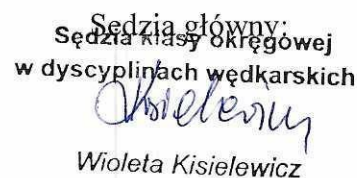 Sędzia główny:
Sędzia klasy okręgowej
w dyscyplinach wędkarskich
Kisielewicz
Wioleta Kisielewicz